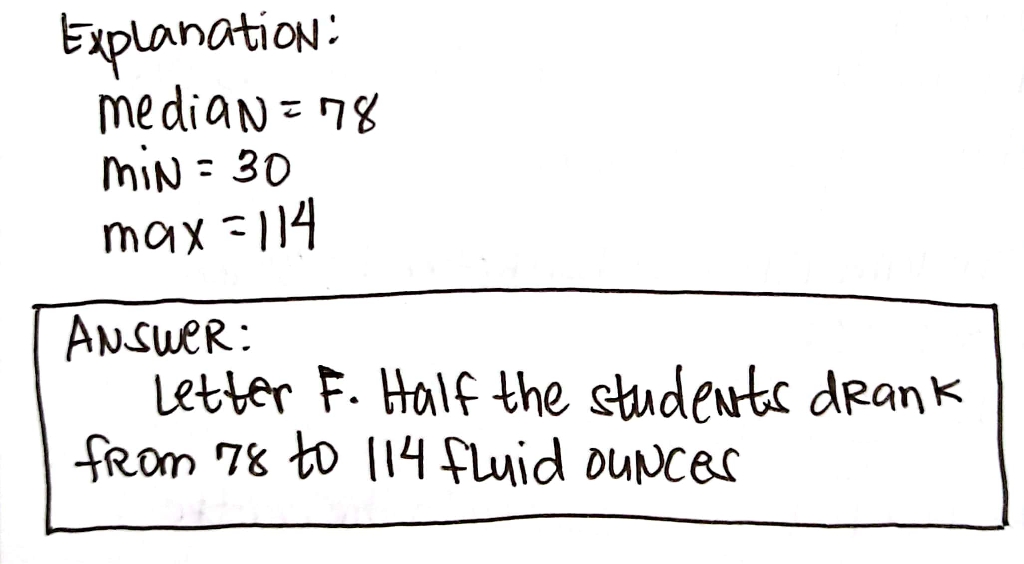 Explanation:
median = 78
min = 30
max = 114
Answer:
Letter F. Half the students drank
from 78 to 114 fluid ounces